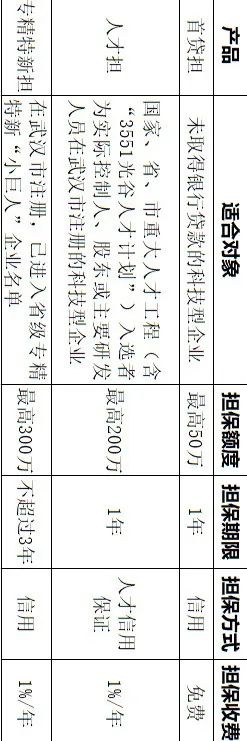 产品 适合对象 担保额度 担保期限 担保方式 担保收费
首贷担 未取得银行贷款的科技型企业 最高50万 1年 信用 免费
人才担 国家、省、市重大人才工程（含
“3551光谷人才计划”）入选者
为实际控制人、股东或主要研发
人员在武汉市注册的科技型企业 最高200万 1年 人才信用
保证 1%/年
专精特新担 在武汉市注册，已进入省级专精
特新“小巨人”企业名单 最高300万 不超过3年 信用 1%/年